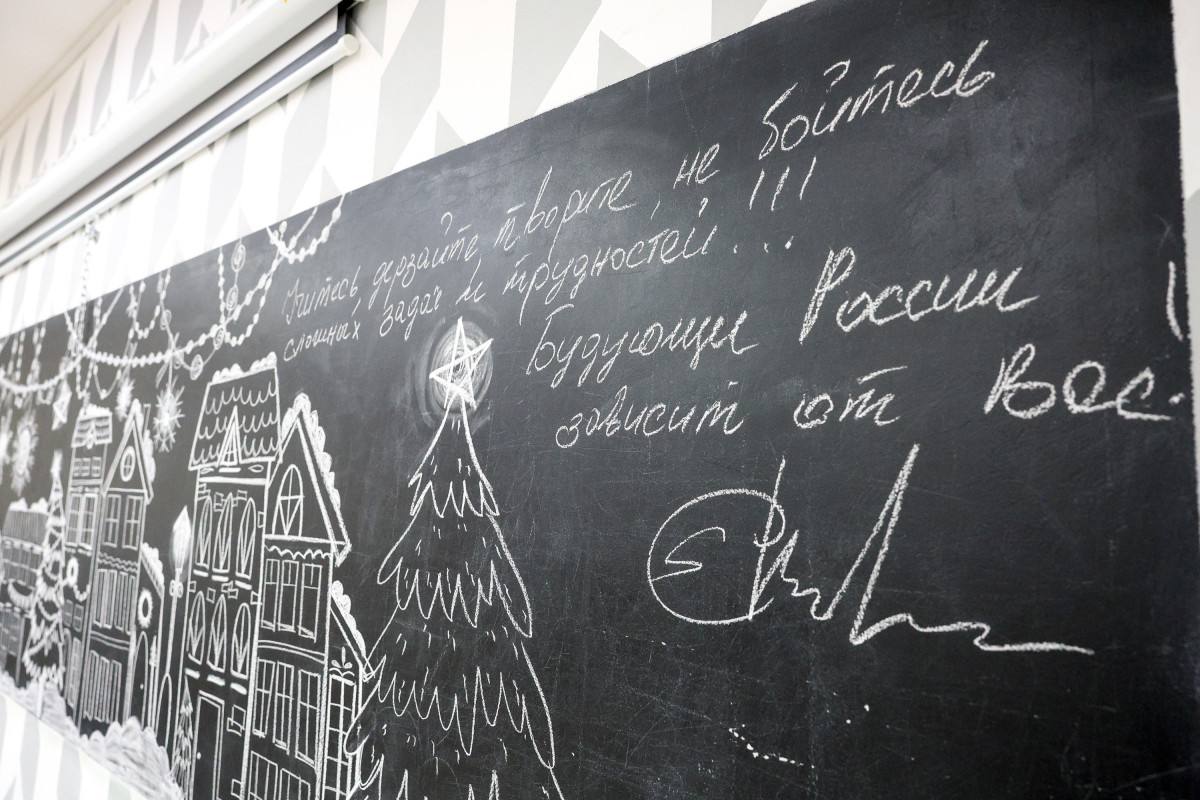 Учитесь, дерзайте, творите, не бойтесь
сложных задач и трудностей... !!!
Будующие России
зависит от Вас.